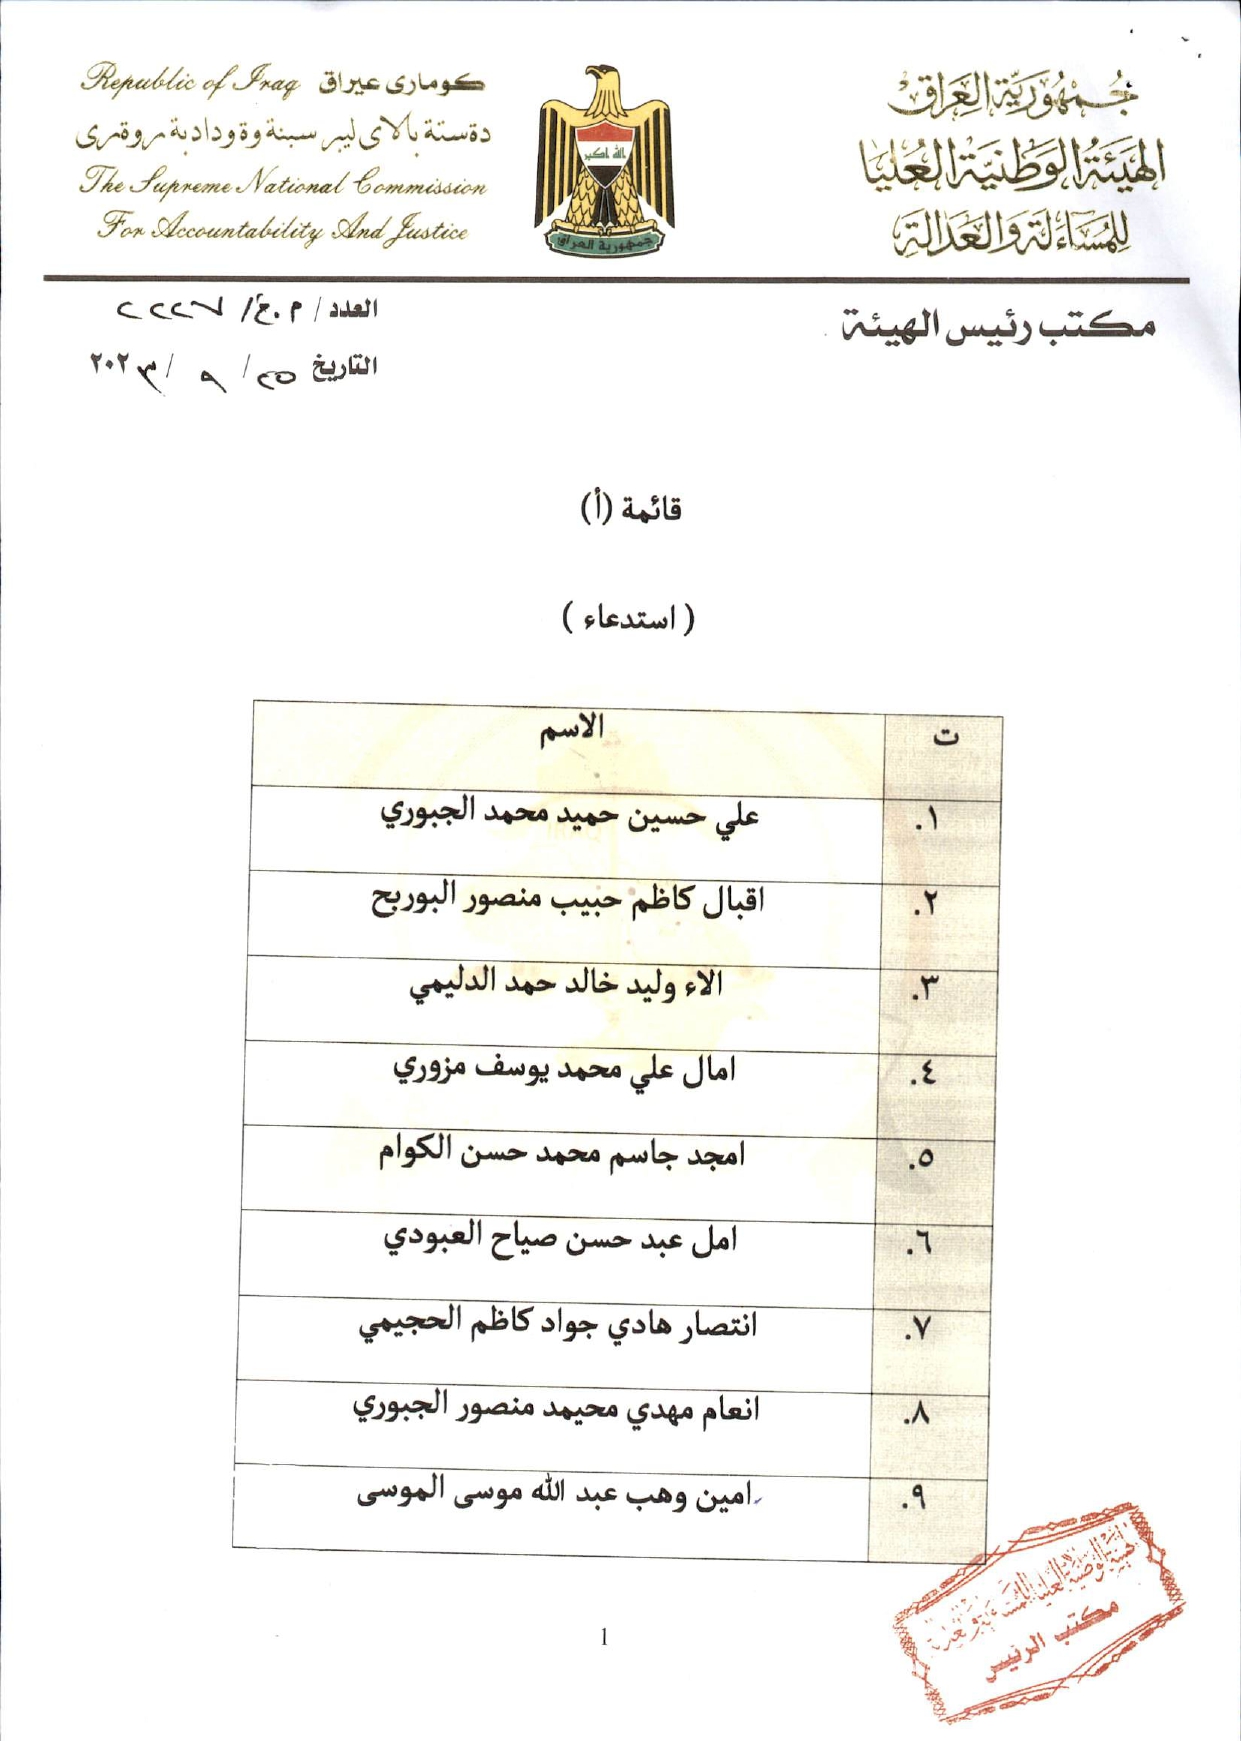 جمهورية العراق
الهيئة الوطنية العليا
للمساءلة والعدالة
الله اكبر
جمهورية العراق
Republic of Iraq كوماری عیراق
دةستة بالای لیبرسینةوة ودادبةروةری
The Supreme National Commission
For Accountability And Justice
مكتب رئيس الهيئة
العدد / م.خ/ ٢٢٢٧
التاريخ ٢٥ / ٩ / ٢٠٢٣
قائمة (أ)
( استدعاء )
ت الاسم
١. علي حسين حميد محمد الجبوري
٢. اقبال كاظم حبيب منصور البوربح
٣. الاء وليد خالد حمد الدليمي
٤. امال علي محمد يوسف مزوري
٥. امجد جاسم محمد حسن الكوام
٦. امل عبد حسن صياح العبودي
٧. انتصار هادي جواد كاظم الحجيمي
٨. انعام مهدي محيمد منصور الجبوري
٩. امين وهب عبد الله موسى الموسى
الهيئة الوطنية العليا للمساءلة والعدالة
مكتب الرئيس
1